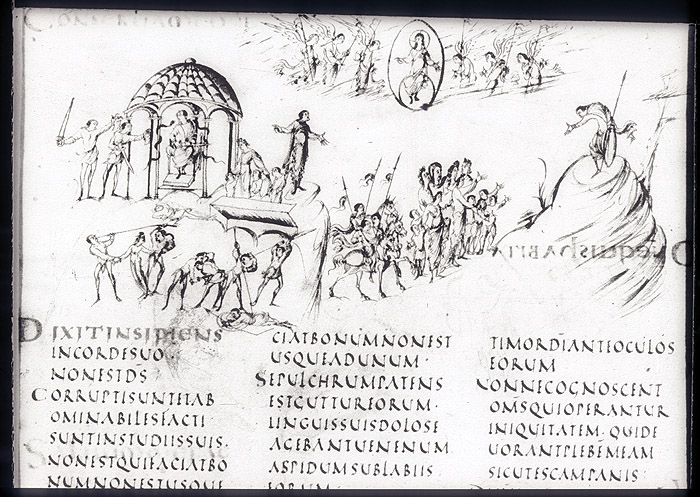 DIXITINSIPIENS
INCORDESUO·
NONESTDS
CORRUPTISUNTETAB
OMINABILESFACTI
SUNTINSTUDIISSUIS·
NONESTQUIFACIATBO
NUMNONESTUSQUE
CIATBONUMNONEST
USQUEADUNUM·
SEPULCHRUMPATENS
ESTGUTTUREORUM·
LINGUISSUISDOLOSE
AGEBANTUENENUM
ASPIDUMSUBLABIIS
EORUM
TIMORDĪANTEOCULOS
EORUM
NONNECOGNOSCENT
OMS̄QUIOPERANTUR
INIQUITATEM·QUIDE
UORANTPLEBĒMEAM
SICUTESCAMPANIS·